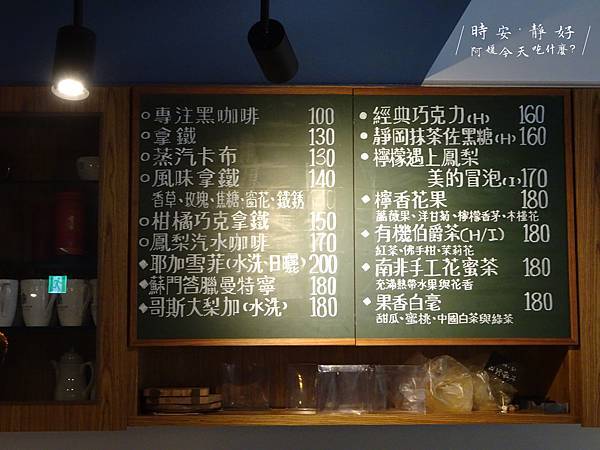 時安·靜好
阿媛今天吃什麼?
專注黑咖啡 100
拿鐵 130
蒸汽卡布 130
風味拿鐵 140
香草、玫瑰、焦糖、窗花、鐵銹
柑橘巧克拿鐵 150
鳳梨汽水咖啡 170
耶加雪菲(水洗·日曬) 200
蘇門答臘曼特寧 180
哥斯大梨加(水洗) 180
經典巧克力(H) 160
靜岡抹茶佐黑糖(H) 160
檸檬遇上鳳梨
美的冒泡(I) 170
檸香花果 180
薔薇果、洋甘菊、檸檬香茅、木槿花
有機伯爵茶(H/I) 180
紅茶、佛手柑、茉莉花
南非手工花蜜茶 180
充滿熱帶水果與花香
果香白毫 180
甜瓜、蜜桃、中國白茶與綠茶